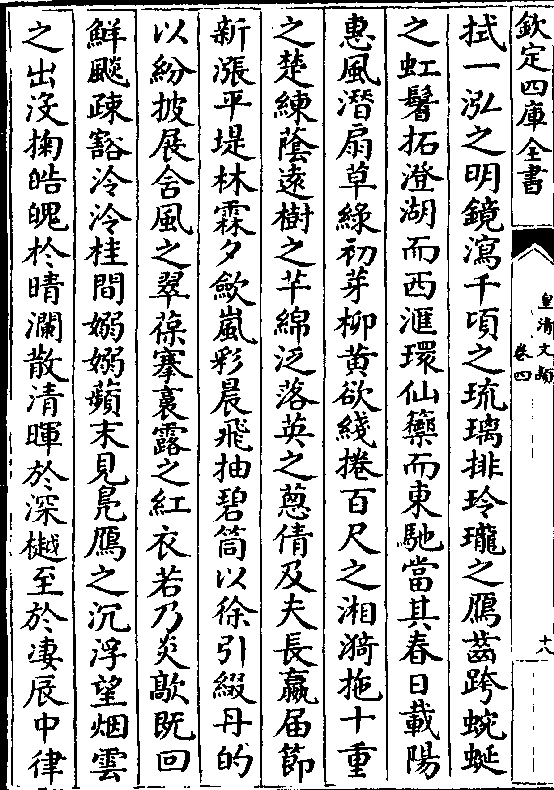 欽定四庫全書
皇清文頴
卷四
十八
拭一泓之明鏡瀉千頃之琉璃排玲瓏之鴈齒跨蜿蜒
之虹鬐拓澄湖而西滙環仙籞而東馳當其春日載陽
惠風潛扇草綠初芽柳黄欲綫捲百尺之湘漪拖十重
之楚練䕃遠樹之芊綿泛落英之蔥倩及夫長嬴届節
新漲平堤林霖夕歛嵐彩晨飛抽碧筒以徐引綴丹的
以紛披展含風之翠葆搴裛露之紅衣若乃炎歊既回
鮮飈疎豁泠泠桂間嫋嫋蘋末見鳧鴈之沉浮望烟雲
之出沒掬皓魄於晴瀾散清暉於深樾至於凄辰中律